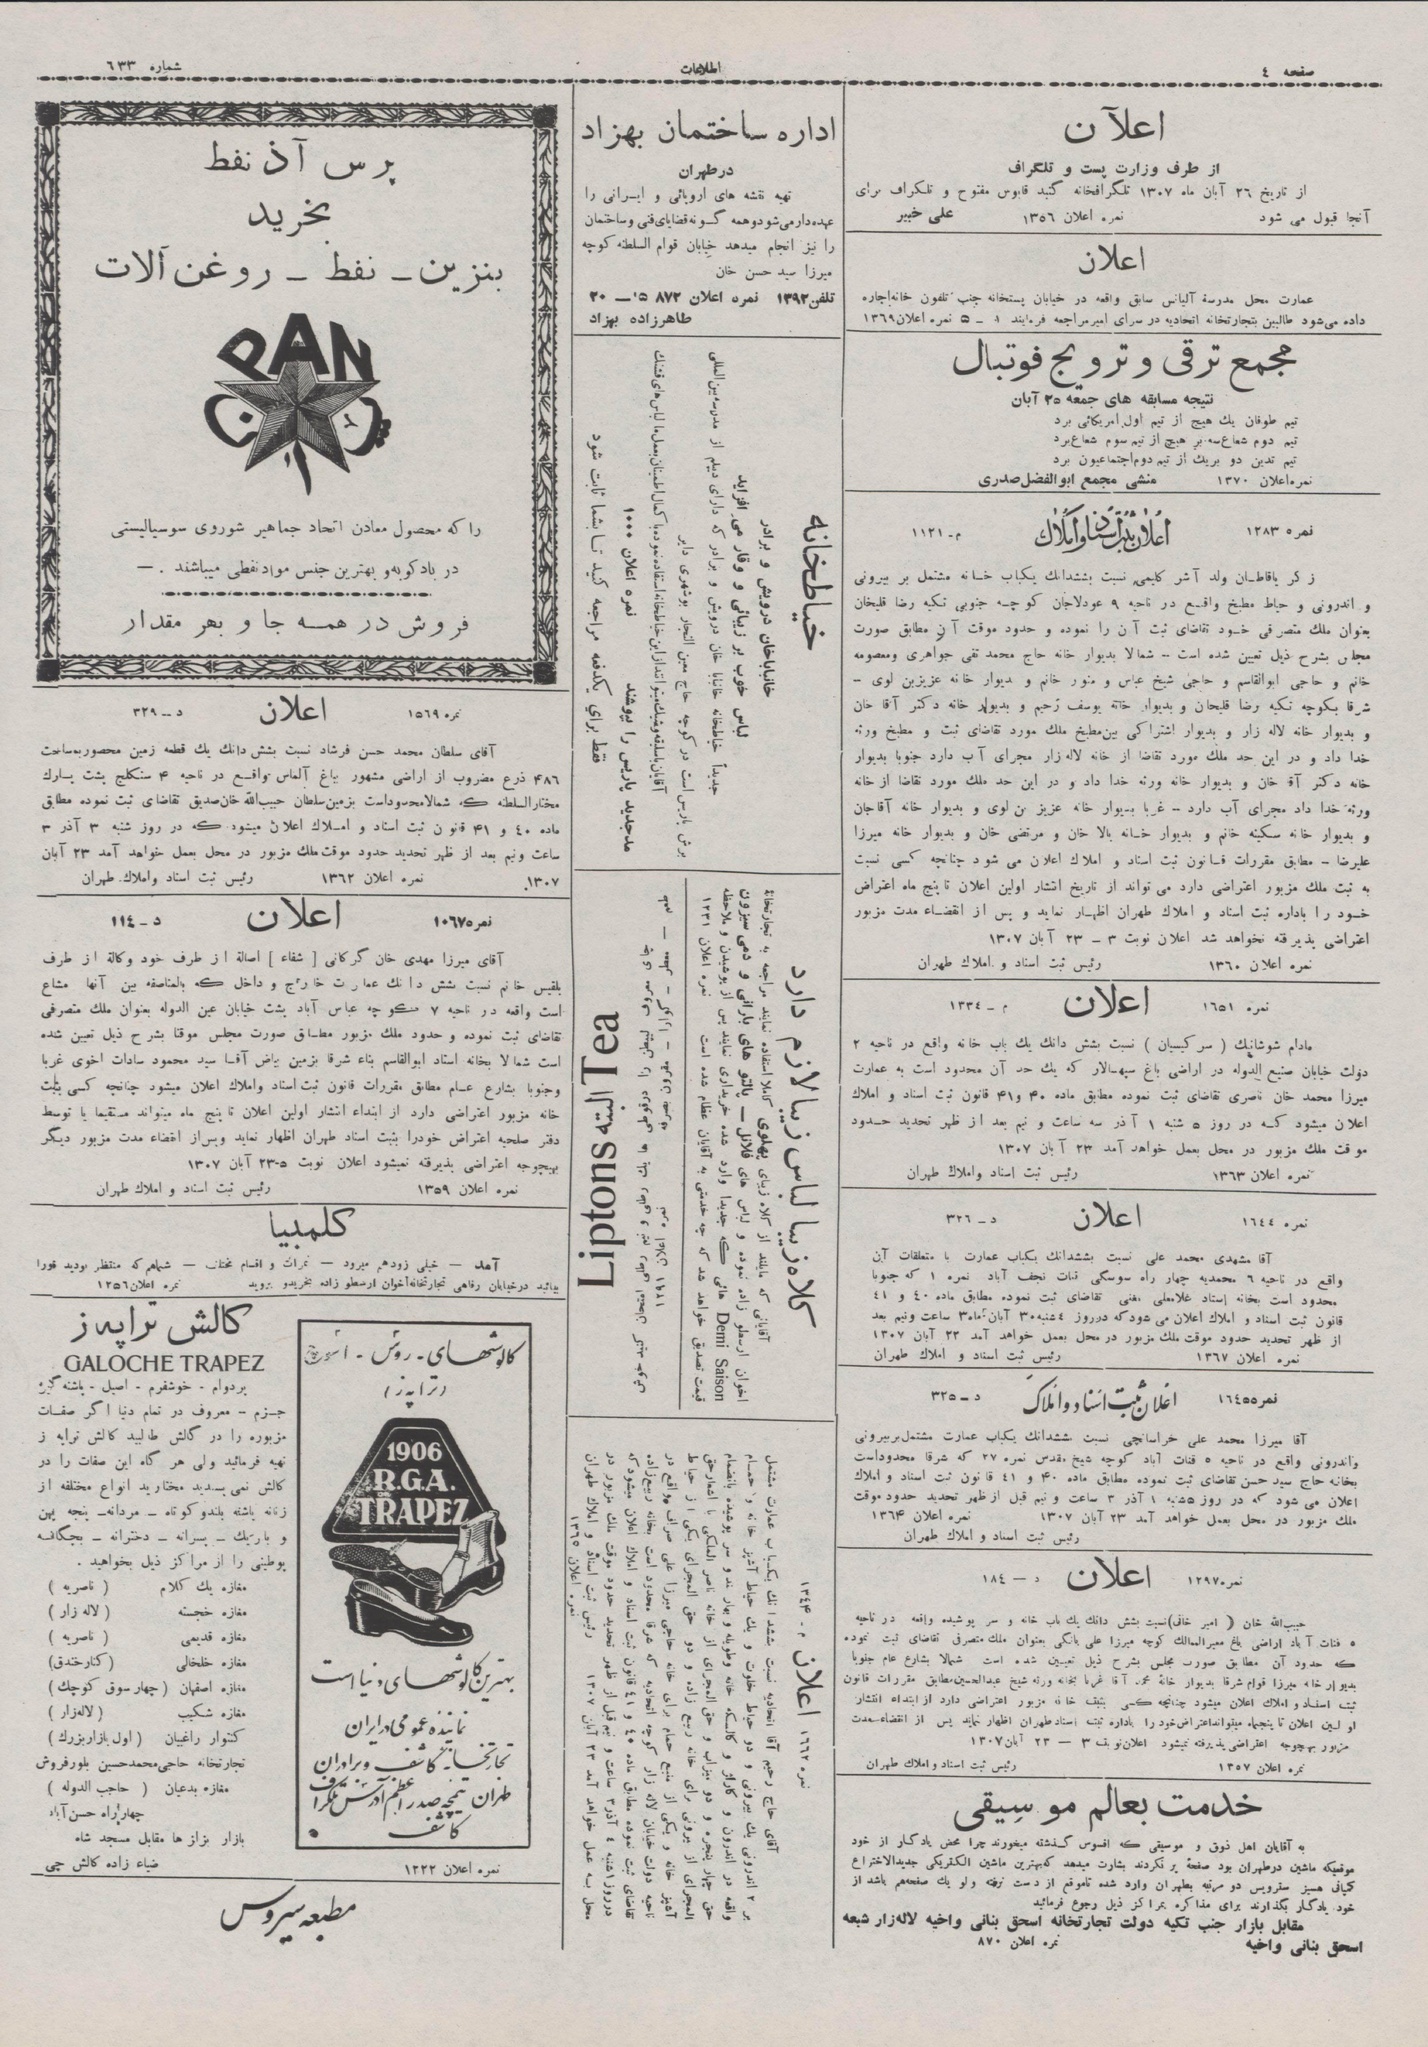 صفحه ٤
اطلاعات
شماره ٦٣٣
اعلان
از طرف وزارت پست و تلگراف
از تاریخ ٢٦ آبان ماه ١٣٠٧ تلگرافخانه گنبد قابوس مفتوح و تلگراف برای
آنجا قبول می شود نمره اعلان ١٣٥٦ علی خبیر
اعلان
عمارت محل مدرسهٔ آلیانس سابق واقعه در خیابان پستخانه جنب تلفون خانه اجاره
داده می‌شود طالبین بتجارتخانه اتحادیه در سرای امیر مراجعه فرمایند ٩ - ٥ نمره اعلان ١٣٦٩
مجمع ترقی و ترویج فوتبال
نتیجه مسابقه های جمعه ٢٥ آبان
تیم طوفان یك هیچ از تیم اول امریکائی برد
تیم دوم شعاع سه بر هیچ از تیم سوم شعاع برد
تیم تدین دو بریك از تیم دوم اجتماعیون برد
نمره اعلان ١٣٧٠ منشی مجمع ابوالفضل صدری
نمره ١٢٨٣ اعلان ثبت اسناد و املاك م - ١١٢١
زکر یاقاطان ولد آشر کلیمی نسبت بششدانك یکباب خانه مشتمل بر بیرونی
و اندرونی و حیاط مطبخ واقع در ناحیه ٩ عودلاجان کوچه جنوبی تکیه رضا قلیخان
بعنوان ملك متصرفی خود تقاضای ثبت آن را نموده و حدود موقت آن مطابق صورت
مجلس بشرح ذیل تعیین شده است - شمالا بدیوار خانه حاج محمد تقی جواهری ومعصومه
خانم و حاجی ابوالقاسم و حاجی شیخ عباس و منور خانم و دیوار خانه عزیزبن لوی -
شرقا بکوچه تکیه رضا قلیخان و بدیوار خانه یوسف رحیم و بدیوار خانه دکتر آقا خان
و بدیوار خانه لاله زار و بدیوار اشتراکی بین مطبخ ملك مورد تقاضای ثبت و مطبخ ورثه
خدا داد و در این حد ملك مورد تقاضا از خانه لاله زار مجرای آب دارد جنوبا بدیوار
خانه دکتر آقا خان و بدیوار خانه ورثه خدا داد و در این حد ملك مورد تقاضا از خانه
ورثه خدا داد مجرای آب دارد - غربا بدیوار خانه عزیز بن لوی و بدیوار خانه آقاجان
و بدیوار خانه سکینه خانم و بدیوار خانه بالا خان و مرتضی خان و بدیوار خانه میرزا
علیرضا - مطابق مقررات قانون ثبت اسناد و املاك اعلان می شود چنانچه کسی نسبت
به ثبت ملك مزبور اعتراضی دارد می تواند از تاریخ انتشار اولین اعلان تا پنج ماه اعتراض
خود را باداره ثبت اسناد و املاك طهران اظهار نماید و پس از انقضاء مدت مزبور
اعتراضی پذیرفته نخواهد شد اعلان نوبت ٣ - ٢٣ آبان ١٣٠٧
نمره اعلان ١٣٦٠ رئیس ثبت اسناد و املاك طهران
نمره ١٦٥١ اعلان م - ١٣٣٤
مادام شوشانیك ( سرکیسیان ) نسبت بشش دانك یك باب خانه واقع در ناحیه ٢
دولت خیابان صنیع الدوله در اراضی باغ سپهسالار که یك حد آن محدود است به عمارت
میرزا محمد خان ناصری تقاضای ثبت نموده مطابق ماده ٤٠ و ٤١ قانون ثبت اسناد و املاك
اعلان میشود که در روز ٥ شنبه ١ آذر سه ساعت و نیم بعد از ظهر تحدید حدود
موقت ملك مزبور در محل بعمل خواهد آمد ٢٣ آبان ١٣٠٧
نمره اعلان ١٣٦٣ رئیس ثبت اسناد واملاك طهران
نمره ١٦٤٤ اعلان د - ٣٢٦
آقا مشهدی محمد علی نسبت بششدانك یکباب عمارت با متعلقات آن
واقع در ناحیه ٦ محمدیه چهار راه سوسکی قنات نجف آباد نمره ١ که جنوبا
محدود است بخانه استاد غلامعلی مقنی تقاضای ثبت نموده مطابق ماده ٤٠ و ٤١
قانون ثبت اسناد و املاك اعلان می شود که در روز ٤ شنبه ٣٠ آبان ماه ٣ ساعت ونیم بعد
از ظهر تحدید حدود موقت ملك مزبور در محل بعمل خواهد آمد ٢٢ آبان ١٣٠٧
نمره اعلان ١٣٦٧ رئیس ثبت اسناد و املاك طهران
نمره ١٦٤٥٥ اعلان ثبت اسناد و املاك د - ٣٢٥
آقا میرزا محمد علی خراسانچی نسبت بششدانك یکباب عمارت مشتمل بر بیرونی
واندرونی واقع در ناحیه ٥ قنات آباد کوچه شیخ مقدس نمره ٢٧ که شرقا محدوداست
بخانه حاج سید حسن تقاضای ثبت نموده مطابق ماده ٤٠ و ٤١ قانون ثبت اسناد و املاك
اعلان می شود که در روز ٥ شنبه ١ آذر ٣ ساعت و نیم قبل از ظهر تحدید حدود موقت
ملك مزبور در محل بعمل خواهد آمد ٢٣ آبان ١٣٠٧ نمره اعلان ١٣٦٤
رئیس ثبت اسناد و املاك طهران
نمره ١٢٩٧ اعلان د - ١٨٤
حبیب الله خان ( امیر خانی ) نسبت بشش دانك یك باب خانه و سر پوشیده واقعه در ناحیه
٥ قنات آباد اراضی باغ معیر الممالك کوچه میرزا علی بانکی بعنوان ملك متصرفی تقاضای ثبت نموده
که حدود آن مطابق صورت مجلس بشرح ذیل تعیین شده است شمالا بشارع عام جنوبا
بدیوار خانه میرزا قوام شرقا بدیوار خانهٔ محمد آقا غربا بخانه ورثه شیخ عبدالحسین مطابق مقررات قانون
ثبت اسناد و املاك اعلان میشود چنانچه کسی بثبت خانه مزبور اعتراضی دارد از ابتداء انتشار
اولین اعلان تا پنجماه میتواند اعتراض خود را باداره ثبت اسناد طهران اظهار نماید پس از انقضاء مدت
مزبور بهیچوجه اعتراضی پذیرفته نمیشود اعلان نوبت ٣ - ٢٣ آبان ١٣٠٧
نمره اعلان ١٣٥٧ رئیس ثبت اسناد و املاك طهران
خدمت بعالم موسیقی
به آقایان اهل ذوق و موسیقی که افسوس گذشته میخورند چرا محض یادگار از خود
موقعیکه ماشین در طهران بود صفحهٔ پر نکردند بشارت میدهد که بهترین ماشین الکتریکی جدید الاختراع
کمپانی هیس سقرویس دو مرتبه بطهران وارد شده تا موقع از دست نرفته ولو یك صفحه هم باشد از
خود یادگار بگذارند برای مذاکره بمراکز ذیل رجوع فرمائید
مقابل بازار جنب تکیه دولت تجارتخانه اسحق بنانی واخیه لاله زار شعبه
اسحق بنانی واخیه نمره اعلان ٨٧٠
اداره ساختمان بهزاد
در طهران
تهیه نقشه های اروپائی و ایرانی را
عهده دار می‌شود و همه گونه قضایای فنی و ساختمان
را نیز انجام میدهد خیابان قوام السلطنه کوچه
میرزا سید حسن خان
تلفن ١٣٩٢ نمره اعلان ٨٧٢ ١٥ - ٢٠
طاهرزاده بهزاد
خیاطخانه
خانباباخان درویش و برادر
لباس خوب بر زیبائی و وقار می افزاید
جدیداً خیاطخانه خانبابا خان درویش و برادر که دارای دیپلم از مدرسه بین المللی
برش پاریس است در کوچه حاج معین التجار بوشهری دایر
آقایان باسلیقه و شیك میتوانند از این خیاطخانه استفاده نموده با کمال اطمینان بعمل ما لباس های قشنك
مد جدید پاریس را بپوشند نمره اعلان ١٠٠٠
فقط برای یکدفعه مراجعه کنید تا بشما ثابت شود
کلاه زیبا لباس زیبا لازم دارد
آقایانی که مایلند از کلاه زیبای پهلوی کاملا استفاده نمایند مراجعه به تجارتخانهٔ
اخوان ارسطو زاده نموده و لباس های فلانل - پالتو های بارانی و دمی سیزون
Demi Saison هائی که جدیدا وارد شده خریداری نمایند پس از پوشیدن و ملاحظه
قیمت تصدیق خواهند شد که چه خدمتی به آقایان عظام شده است نمره اعلان ١٢٣١
Liptons Tea
نمره ١٦٦٢ اعلان م - ١٣٤٤
آقای حاج رحیم آقا اتحادیه نسبت ششدانك یکباب عمارت مشتمل
بر ٢ اندرونی یك بیرونی و دو حیاط خلوت و یك حیاط آشپز خانه و حمام
واقعه در اندرون و گاراژ و کالسکه خانه وطویله و بهاربند و سر پوشیده بانضمام
حق چهار پنجره و دو میزاب و حق المجرای از خانه ناصر الملکی با انضمام حق
المجرای از بیرونی برای خانه ربیع زاده و دو حق المجرای یکی از حیاط
آشپز خانه و یکی از منبع حمام برای خانه حاجی میرزا علی صراف واقع در
ناحیه دولت خیابان لاله زار کوچه اتحادیه که شرقا محدود است بخانه ربیع زاده
تقاضای ثبت نموده مطابق ماده ٤٠ و ٤١ قانون ثبت اسناد و املاك اعلان میشود که
در روز ١ شنبه ٤ آذر ٣ ساعت و نیم قبل از ظهر تحدید حدود موقت ملك مزبور در
محل به عمل خواهد آمد ٢٣ آبان ١٣٠٧ رئیس ثبت اسناد و املاك طهران
نمره اعلان ١٣٦٥
پرس آذ نفط
بخرید
بنزین - نفط - روغن آلات
PAN
را که محصول معادن اتحاد جماهیر شوروی سوسیالیستی
در بادکوبه و بهترین جنس مواد نفطی میباشند . -
فروش در همه جا و بهر مقدار
نمره ١٥٦٩ اعلان د - ٣٢٩
آقای سلطان محمد حسن فرشاد نسبت بشش دانك یك قطعه زمین محصور به مساحت
٤٨٦ ذرع مضروب از اراضی مشهور بباغ آلماس واقع در ناحیه ٤ سنگلج پشت پارك
مختار السلطنه که شمالا محدوداست بزمین سلطان حبیب الله خان صدیق تقاضای ثبت نموده مطابق
ماده ٤٠ و ٤١ قانون ثبت اسناد و املاك اعلان میشود که در روز شنبه ٣ آذر ٣
ساعت ونیم بعد از ظهر تحدید حدود موقت ملك مزبور در محل بعمل خواهد آمد ٢٣ آبان
١٣٠٧. نمره اعلان ١٣٦٢ رئیس ثبت اسناد واملاك طهران
نمره ١٠٦٧٥ اعلان د - ١١٤
آقای میرزا مهدی خان گرکانی [ شفاء ] اصالة از طرف خود وکالة از طرف
بلقیس خانم نسبت بشش دانك عمارت خارج و داخل که بالمناصفه بین آنها مشاع
است واقعه در ناحیه ٧ کوچه عباس آباد پشت خیابان عین الدوله بعنوان ملك متصرفی
تقاضای ثبت نموده و حدود ملك مزبور مطابق صورت مجلس موقتا بشرح ذیل تعیین شده
است شمالا بخانه استاد ابوالقاسم بناء شرقا بزمین بیاض آقا سید محمود سادات اخوی غربا
وجنوبا بشارع عام مطابق مقررات قانون ثبت اسناد واملاك اعلان میشود چنانچه کسی بثبت
خانه مزبور اعتراضی دارد از ابتداء انتشار اولین اعلان تا پنج ماه میتواند مستقیما یا توسط
دفتر صلحیه اعتراض خودرا بثبت اسناد طهران اظهار نماید وپس از انقضاء مدت مزبور دیگر
بهیچوجه اعتراضی پذیرفته نمیشود اعلان نوبت ٥-٢٣ آبان ١٣٠٧
نمره اعلان ١٣٥٩ رئیس ثبت اسناد و املاك طهران
کلمبیا
آمد - خیلی زود هم میرود - نمرات و اقسام مختلف - شما هم که منتظر بودید فورا
بیائید در خیابان رفاهی تجارتخانه اخوان ارسطو زاده بخرید و بروید نمره اعلان ١٢٥٦
کالش تراپه ز
GALOCHE TRAPEZ
پردوام - خوشفرم - اصیل - پاشنه گیر
جزم - معروف در تمام دنیا اگر صفات
مزبوره را در گالش طالبید کالش تراپه ز
تهیه فرمائید ولی هر گاه این صفات را در
کالش نمی پسندید مختارید انواع مختلفه از
زنانه پاشنه بلند و کوتاه - مردانه - پنجه پهن
و باریك - پسرانه - دخترانه - بچگانه
پوطینی را از مراکز ذیل بخواهید .
مغازه یك کلام ( ناصریه )
مغازه خجسته ( لاله زار )
مغازه قدیمی ( ناصریه )
مغازه خلخالی ( کنار خندق )
مغازه اصفهان ( چهار سوق کوچك )
مغازه شکیب ( لاله زار )
کنتوار راغیان ( اول بازار بزرك )
تجارتخانه حاجی محمد حسین بلور فروش
مغازه بدعیان ( حاجب الدوله )
چهار راه حسن آباد
بازار بزاز ها مقابل مسجد شاه
ضیاء زاده کالش چی
کالوشهای - روش -
( تراپه ز )
1906
R.G.A.
TRAPEZ
بهترین کالوشهای دنیا است
نماینده عمومی در ایران
تجارتخانه کاشف و برادران
طهران تیمچه صدر اعظم آدرس تلگراف
کاشف
نمره اعلان ١٢٢٢
مطبعه سیروس